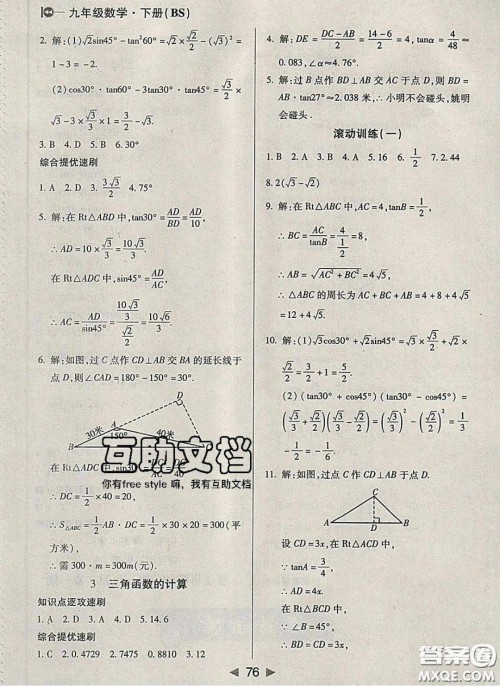 九年级数学·下册(BS)
2. 解:(1)√2sin45°-tan²60°=√2×√2/2-(√3)²=
1-3=-2.
(2)cos30°·tan60°-3tan30°·tan45°=√3/2×
√3-3×√3/3×1=3/2-√3.
3. B 4. D 5. B 6. 30°
综合提优速刷
1. A 2. D 3. 3√3/2 4. 75°
5. 解:在Rt△ABD中,tan30°=AD/BD=AD/10,
∴AD=10×√3/3=10√3/3.
在Rt△ADC中,sin45°=AD/AC,
∴AC=AD/sin45°=(10√3/3)/(√2/2)=10√6/3.
6. 解:如图,过C点作CD⊥AB交BA的延长线于
点D,则∠CAD=180°-150°=30°.
D
A
30米
150°
40米
B
互助文档
你有free style 嘛,我有互助文档
在Rt△
∴DC=1/2×40=20,
∴S△ABC=1/2AB·DC=1/2×30×20=300(平
方米),
∴需300·m=300m(元).
3 三角函数的计算
知识点逐攻速刷
1. A 2. B 3. A 4. D 5. 14.6
综合提优速刷
1. C 2. 0.4729 3. 7.1475 4. 0.8881 5. 0.9252
4. 解:DE=(DC-AB)/2=(54-46)/2=4, tanα=4/48≈
0.083, α≈4.76°.
5. 解:过B点作BD⊥AC交AC于点D,则BD=
AB·tan27°≈2.038米,∴小明不会碰头,姚明
会碰头.
滚动训练(一)
1. B 2. A 3. A 4. A 5. 16 6. 1/2 7. 2.44
8. 2(√3-√2)
9. 解:在Rt△ABC中,AC=4,tanB=1/2,
∴BC=AC/tanB=4/(1/2)=8,
∴AB=√(AC²+BC²)=4√5,
∴△ABC的周长为AC+BC+AB=4+8+4√5
=12+4√5.
10. 解:(1)√3cos30°+√2sin45°=√3×√3/2+√2×
√2/2=3/2+1=5/2.
(2)(tan30°+cos45°)(tan30°-cos45°)=
(√3/3+√2/2)(√3/3-√2/2)=(√3/3)²-(√2/2)²=
1/3-1/2=-1/6.
11. 解:如图,过点C作CD⊥AB于点D.
C
A
D
B
设CD=3x,在Rt△ACD中,
∵tanA=3/4,
∴AD=4x.
在Rt△BCD中,
∴BD=CD/tanB=3x/
76
答案圈
MXQE.COM